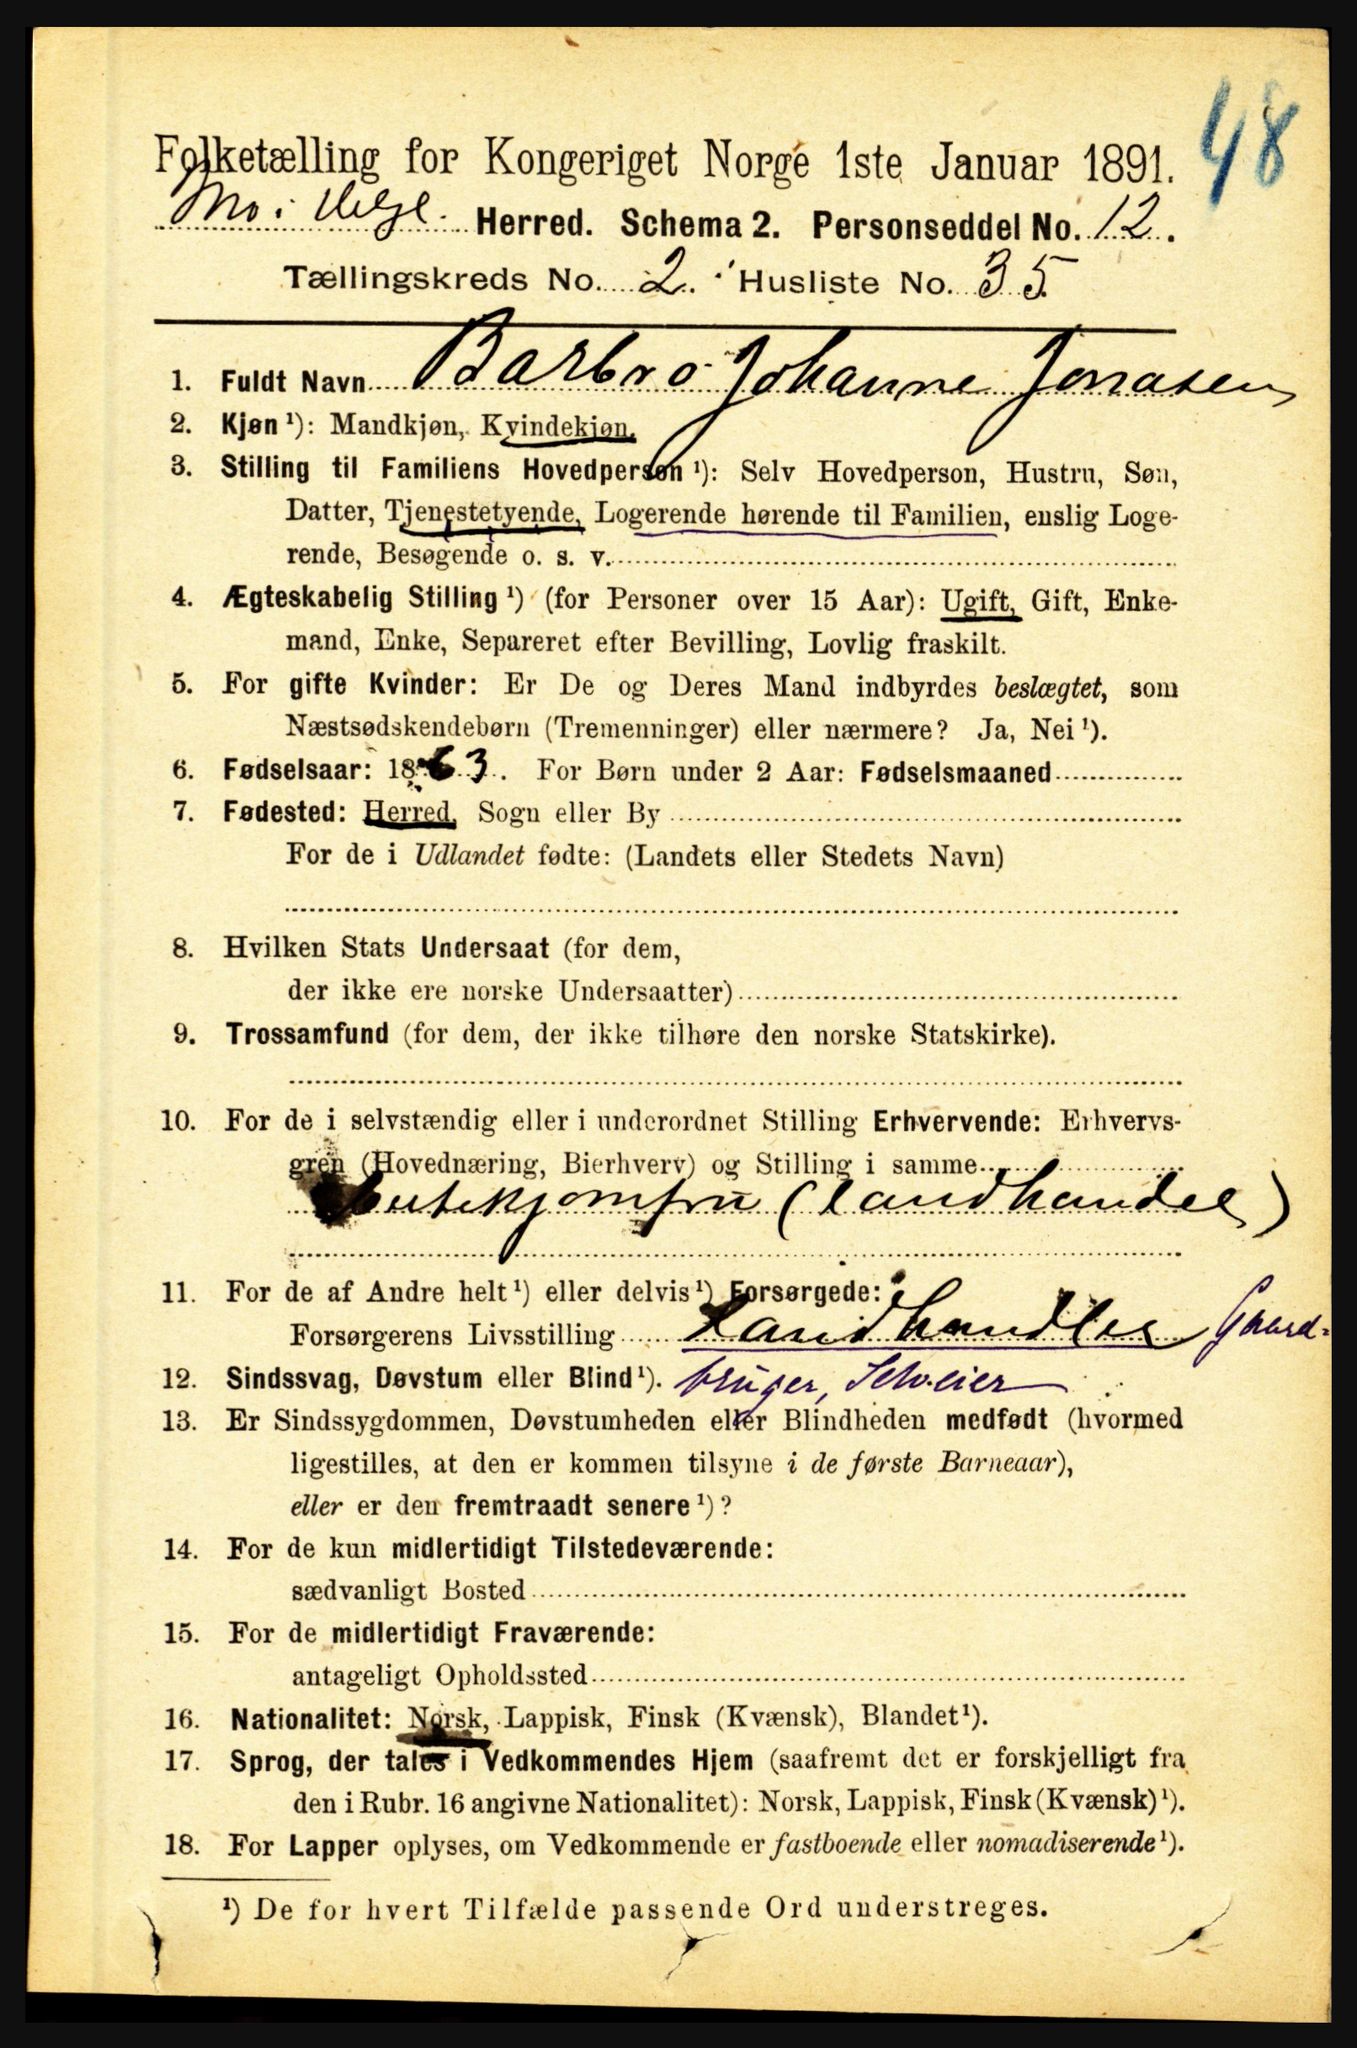 48
Folketælling for Kongeriget Norge 1ste Januar 1891.
Mo i Helgl. Herred. Schema 2. Personseddel No. 12.
Tællingskreds No. 2. Husliste No. 35
1. Fuldt Navn Barbro Johanne Jonasen
2. Kjøn ¹): Mandkjøn, Kvindekjøn.
3. Stilling til Familiens Hovedperson ¹): Selv Hovedperson, Hustru, Søn,
Datter, Tjenestetyende, Logerende hørende til Familien, enslig Loge-
rende, Besøgende o. s. v.
4. Ægteskabelig Stilling ¹) (for Personer over 15 Aar): Ugift, Gift, Enke-
mand, Enke, Separeret efter Bevilling, Lovlig fraskilt.
5. For gifte Kvinder: Er De og Deres Mand indbyrdes beslægtet, som
Næstsødskendebørn (Tremenninger) eller nærmere? Ja, Nei ¹).
6. Fødselsaar: 1863. For Børn under 2 Aar: Fødselsmaaned
7. Fødested: Herred, Sogn eller By
For de i Udlandet fødte: (Landets eller Stedets Navn)
8. Hvilken Stats Undersaat (for dem,
der ikke ere norske Undersaatter)
9. Trossamfund (for dem, der ikke tilhøre den norske Statskirke).
10. For de i selvstændig eller i underordnet Stilling Erhvervende: Erhvervs-
gren (Hovednæring, Bierhverv) og Stilling i samme
Butikjomfru (Landhandel)
11. For de af Andre helt ¹) eller delvis ¹) Forsørgede:
Forsørgerens Livsstilling Landhandler Gaard-
12. Sindssvag, Døvstum eller Blind ¹). bruger,
13. Er Sindssygdommen, Døvstumheden eller Blindheden medfødt (hvormed
ligestilles, at den er kommen tilsyne i de første Barneaar),
eller er den fremtraadt senere ¹)?
14. For de kun midlertidigt Tilstedeværende:
sædvanligt Bosted
15. For de midlertidigt Fraværende:
antageligt Opholdssted
16. Nationalitet: Norsk, Lappisk, Finsk (Kvænsk), Blandet ¹).
17. Sprog, der tales i Vedkommendes Hjem (saafremt det er forskjelligt fra
den i Rubr. 16 angivne Nationalitet): Norsk, Lappisk, Finsk (Kvænsk) ¹).
18. For Lapper oplyses, om Vedkommende er fastboende eller nomadiserende ¹).
¹) De for hvert Tilfælde passende Ord understreges.